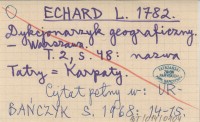 ECHARD L. 1782.
Dykcjonarzyk geograficzny.
— Warszawa.
T. 2, s. 48. nazwa
Tatry = Karpaty.
Cytat pełny w: UR-
BAŃCZYK S. 1968: 14-15.